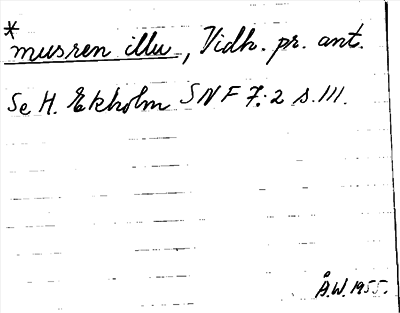 *musren illu, Vidh. pr. ant.
Se H. Ekholm SNF 7:2 s. 111.
Å.W. 1955.